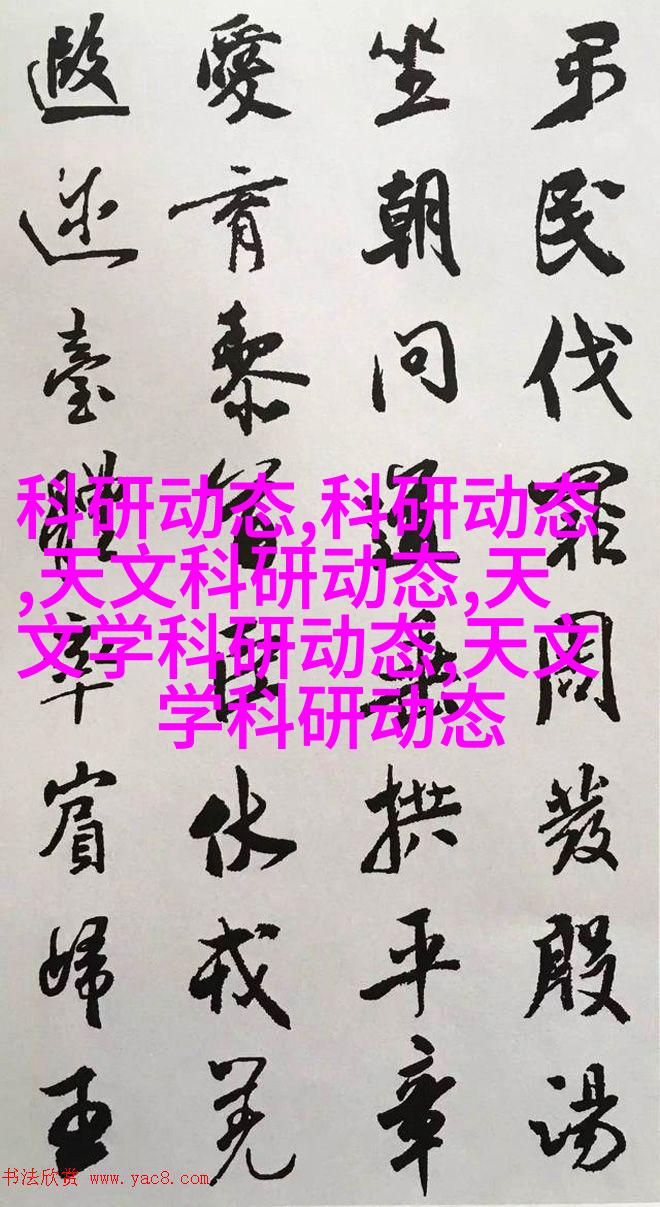 弔民伐罪周發殷湯
坐朝問道垂拱平章
愛育黎首臣伏戎羌
遐邇壹體率賓歸王
科研动态,科研动态
,天文科研动态,天
文学科研动态,天文
学科研动态
书法欣赏 www.yac8.com